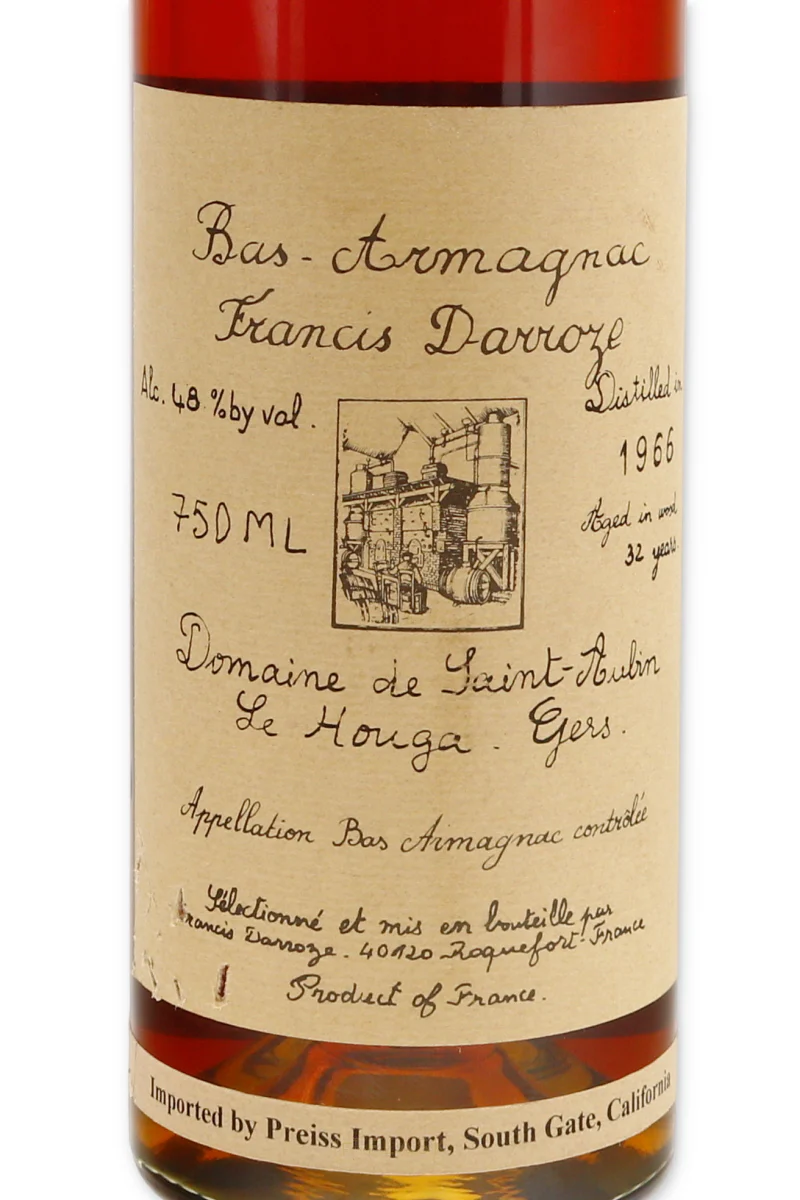 Bas-Armagnac
Francis Darroze
Alc. 48 % by vol.
Distilled in
1966
750 ML
Aged in wood
32 years
Domaine de Saint-Aubin
Le Houga. Gers.
Appellation Bas Armagnac contrôlée
Sélectionné et mis en bouteille par
Francis Darroze. 40120 Roquefort-France
Product of France.
Imported by Preiss Import, South Gate, California